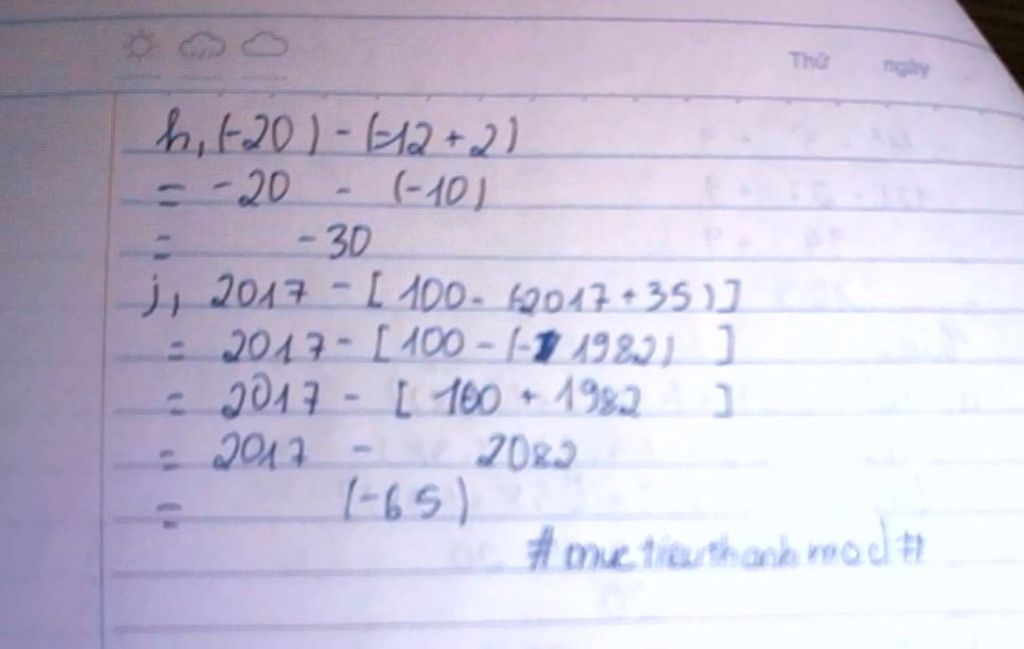 Thứ ngày
h, (-20) - (-12 + 2)
= -20 - (-10)
= -30
j, 2017 - [ 100 - (-2017 + 35) ]
= 2017 - [ 100 - (- 1982) ]
= 2017 - [ 100 + 1982 ]
= 2017 - 2082
= (-65)
#muctieuthanhmod#